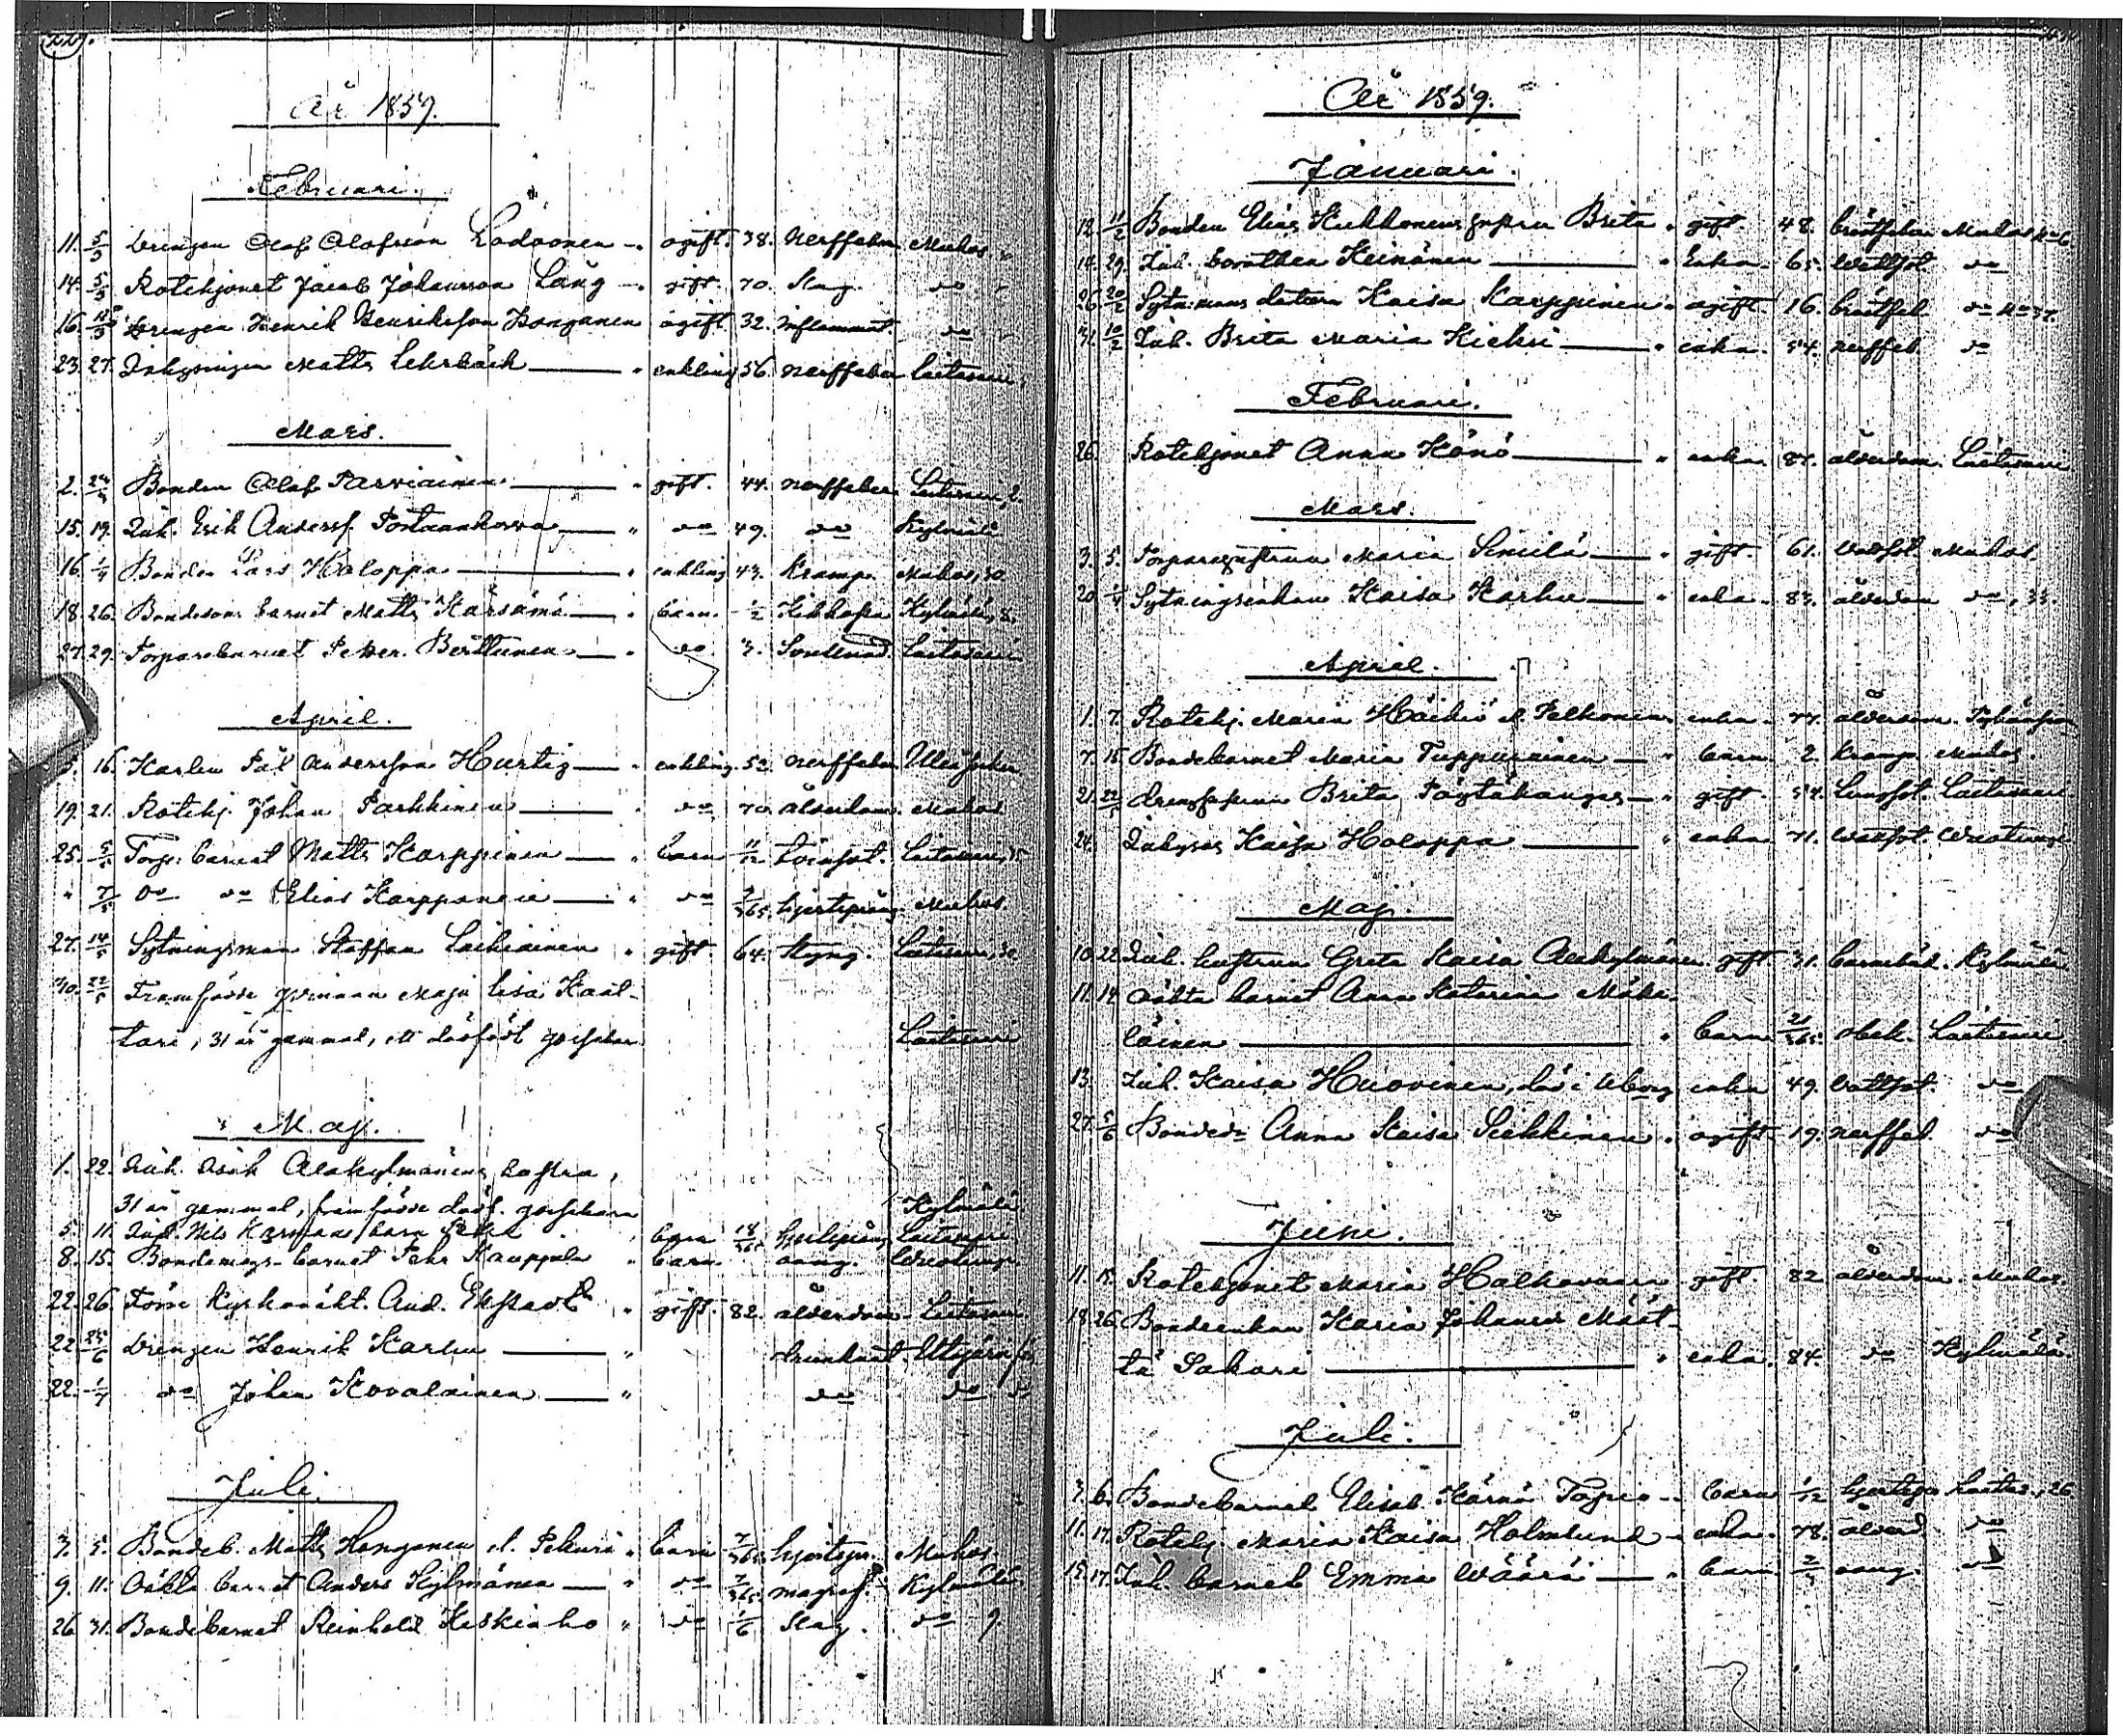 År 1859.
Februari.
11. 5/3 Drengen Olof Olofsson Lodvonen - ogift. 38. Nerffeber Muhos
14. 5/3 Rotehjonet Jacob Johansson Lång - gift. 70. Slag. do
16. Drengen Henrik Henriksson Honganen ogift. 32. Inflammat. do
23. 27. Inhysingen Matts Lehrbäck enkling 56. Nerffeber Laitasaari
Mars.
2. Bonden Olof Parviainen gift. 44. Nerffeber Laitasaari, 2.
15. 19. Inh. Erik Anderss. Portaankorva do 49. do Kylmälä
16. 1/4 Bonden Lars Holoppa enkling 43. Kramp. Muhos, 30.
18. 26. Bondesons barnet Matts Karsämä barn. 1/2 Kikhosta Kylmälä, 8.
27. 29. Torparebarnet Petter Berttunen do 3. Laitasaari
April.
16. Karlen Pål Andersson Hurtig enkling. 52. Nerffeber Uleå socken
19. 21. Rotehj. Johan Parkkinen do 70. ålderdom. Muhos
25. 5/5 Torp. barnet Matts Karppinen barn 11/12 Laitasaari, 15
" 7/5 do do Elias Karppanen do 7/365. hjertspång. Muhos.
27. 14/5 Sytningsman Staffan Laikiainen gift. 64. Styng. Laitasaari,
30. 22/5 Framfödde qvinnan Maja Lisa Kaat-
tari, 31 år gammal, ett dödfödt gossebarn Laitasaari
Maj.
1. 22. Inh. Isak Alakylmänens hustru,
31 år gammal, framfödde dödf. gossebarn Kylmälä
5. 11. Inh. Nils barn barn 18/365 hjertspång Laitasaari
8. 15. Bondemågs barnet Pehr Kauppila barn. oang. Wuotungi
22. 26. Förre Kyrkoväkt. And. Ekstadt gift. 82. ålderdom. Laitasaari
22. 25/6 Drengen Henrik Karhu drunknat. Utajärvi
22. 1/7 do Johan Kovalainen do do do
Juli.
3. 5. Bondeb. Matts Honganen l. Pekuri barn 7/365. hjertspr. Muhos.
9. 11. Oäkta barnet Anders Kylmänen do 7/365. magref. Kylmälä
26 31. Bondebarnet Reinhold Keskiaho do 1/6 Slag. do 9.
År 1859.
Januari.
12. 11/2 Bonden Elias Kukkonens hustru Brita gift. 48. bröstfeber Muhos No 6.
14. 29. Inh. Dorothea Keinänen Enka 65. Wattsot do
26 20/2 Sytnimans dottern Kaisa Karppinen ogift. 16. bröstfeb. do No 37.
31. 10/2 Inh. Brita Maria Kieksi enka. 54. nerffeb. do
Februari.
26. Rotehjonet Anna Könö enka. 87. ålderdom. Laitasaari
Mars.
3. 5. Torparehustrun Maria Similä gift. 61. Wattsot. Muhos.
20. 1/4 Sytningsenkan Kaisa Karhu enka. 83. ålderdom do, 33.
April.
1. 7. Rotehj. Maria Häikiö l. Pelkonen enka. 77. ålderdom.
7. 15. Bondebarnet Maria Tuppurainen barn. 2. Kramp. Muhos.
21. 22/5 Drengshustrun Brita Poytäkangas gift. 54. Lungsot. Laitasaari.
24. Inhyses Kaisa Holoppa enka 71. Wattsot. Wuotungi
Maj.
10. 22. Inh. hustrun Greta Kaisa Alakylmänen gift. 31. barnsbörd. Kylmälä
11. 14. Oäkta barnet Anna Katarina Mäke-
läinen barn. 21/365. Obek. Laitasaari
13. Inh. Kaisa Huovinen, död i Uborg enka 49. Wattsot. do
27. 5/6 Bonded. Anna Kaisa Siekkinen ogift. 19. nerffeb. do
Juni.
11. 15. Rotehjonet Maria Halkovaara gift. 82 ålderdom. Muhos.
18. 26. Bondeenkan Karin Johansd. Määt-
tä Sakari enka. 84. do Kylmälä.
Juli.
3. 6. Bondebarnet Elisab. Kärnä Torpio barn 1/12 hjertspr. Laitas., 26
11. 17. Rotehj. Maria Kaisa Holmlund enka. 78. ålderd. do
15. 17. Inh. barnet Emma Wäärä barn. 2/3 oang. do